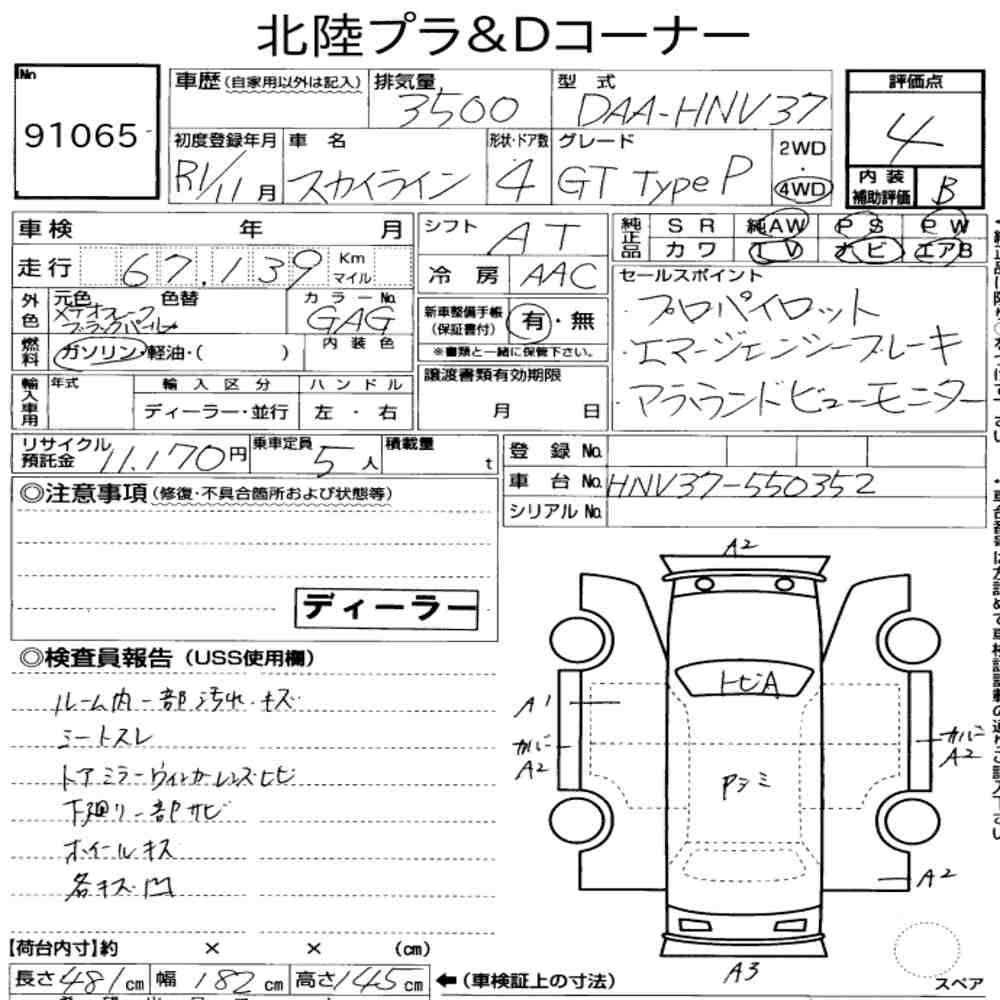 北陸プラ&Dコーナー
No
91065
車歴(自家用以外は記入)
排気量
3500
型式
DAA-HNV37
評価点
4
初度登録年月
R1/11月
車名
スカイライン
形状・ドア数
4
グレード
GT Type P
2WD
・
4WD
内装
補助評価
B
車検 年 月
シフト
AT
純正品
SR 純AW PS PW
カワ TV ナビ エアB
走行
67.139
Km
マイル
冷房
AAC
セールスポイント
・プロパイロット
・エマージェンシーブレーキ
・アラウンドビューモニター
外色
元色 色替
メテオフレーク
ブラックパール
カラーNo.
GAG
新車整備手帳
(保証書付)
有・無
※書類と一緒に保管下さい。
燃料
ガソリン・軽油・( )
内装色
譲渡書類有効期限
月 日
輸入車用
年式
輸入区分
ディーラー・並行
ハンドル
左・右
リサイクル
預託金
11.170円
乗車定員
5人
積載量
t
登録No.
車台No.
HNV37-550352
シリアルNo.
◎注意事項(修復・不具合箇所および状態等)
ディーラー
◎検査員報告(USS使用欄)
ルーム内一部汚れ・キズ
シートスレ
ドアミラーウィンカーレンズヒビ
下廻り一部サビ
ホイールキズ
各キズ凹
A2
トビA
A1
カバー
A2
カバー
A2
Pシミ
A2
A3
スペア
【荷台内寸】約 × × (cm)
長さ481cm 幅182cm 高さ145cm
←(車検証上の寸法)